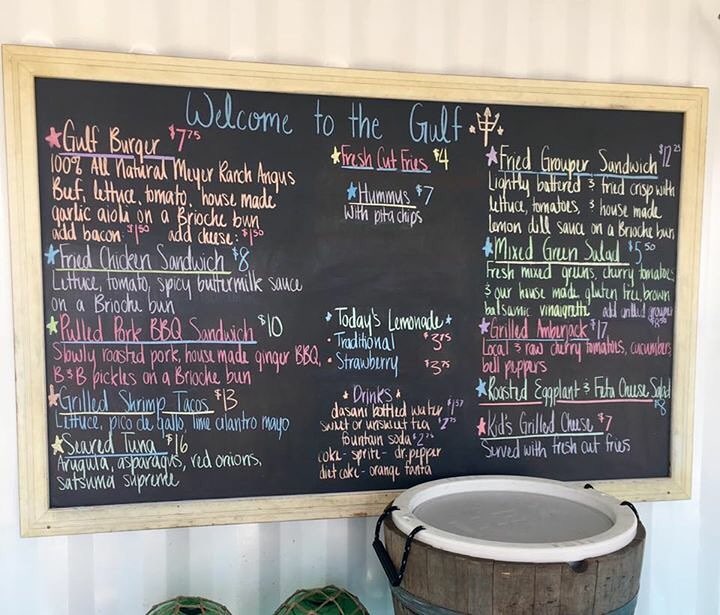 Welcome to the Gulf
Gulf Burger $7.75
100% All Natural Meyer Ranch Angus
Beef, lettuce, tomato, house made
garlic aiola on a Brioche bun
add bacon $1.50 add cheese: $1.50
Fried Chicken Sandwich $8
Lettuce, tomato, spicy buttermilk sauce
on a Brioche bun
Pulled Pork BBQ Sandwich $10
Slowly roasted pork, house made ginger BBQ,
B & B pickles on a Brioche bun
Grilled Shrimp Tacos $13
Lettuce, pico de gallo, lime cilantro mayo
Seared Tuna $16
Arugula, asparagus, red onions,
satsuma supreme
Fresh Cut Fries $4
Hummus $7
with pita chips
Today's Lemonade
Traditional $3.75
Strawberry $3.75
Drinks
dasani bottled water $1.57
sweet or unsweet tea $2.75
fountain soda $2.75
coke - sprite - dr. pepper
diet coke - orange fanta
Fried Grouper Sandwich $12.25
Lightly battered & fried crisp with
lettuce, tomatoes, & house made
lemon dill sauce on a Brioche bun
Mixed Green Salad $5.50
Fresh mixed greens, cherry tomatoes
& our house made, gluten free, brown
balsamic vinaigrette add grilled grouper
Grilled Amberjack $17
Local & raw cherry tomatoes, cucumbers
bell peppers
Roasted Eggplant & Feta Cheese Salad
$8
Kid's Grilled Cheese $7
Served with fresh cut fries